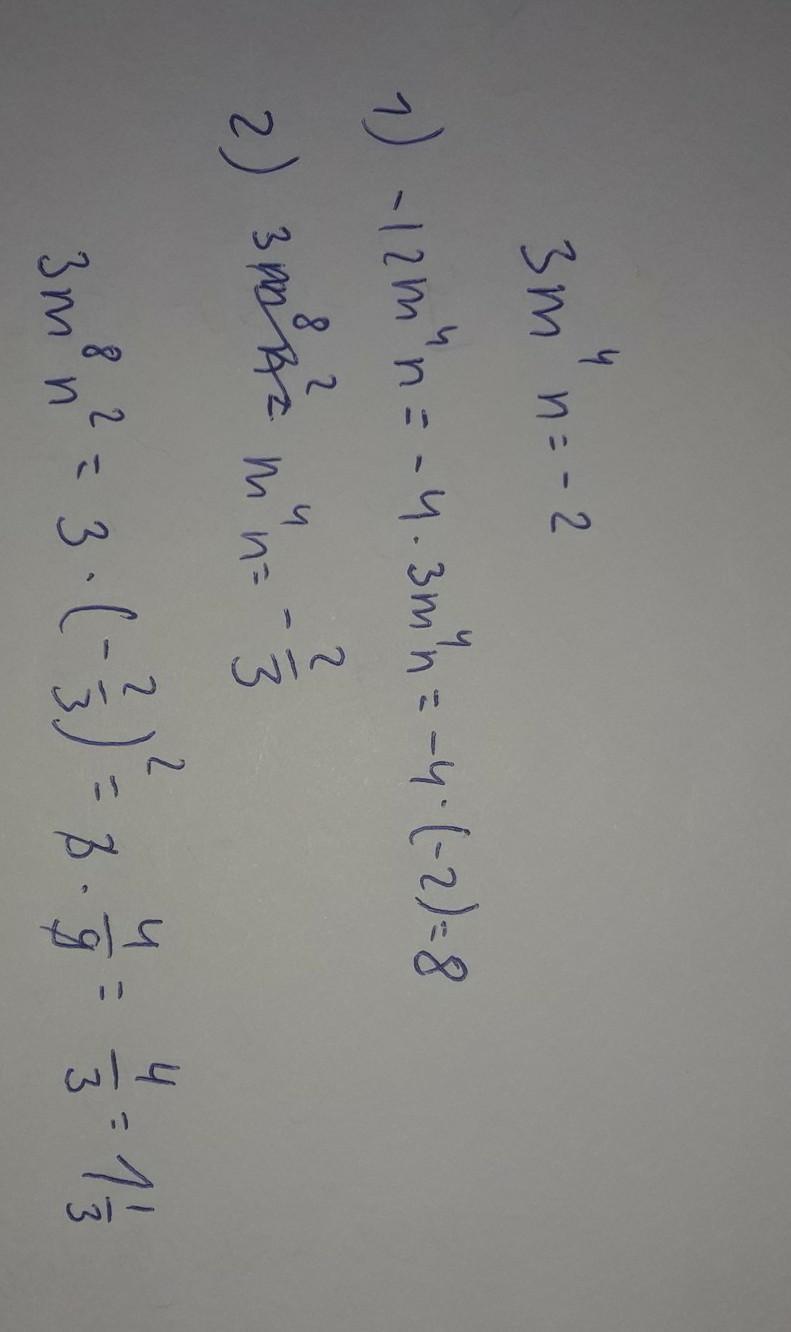 3m⁴n = -2
1) -12m⁴n = -4 · 3m⁴n = -4 · (-2) = 8
2) 3m⁸n² = m⁴n = -2/3
3m⁸n² = 3 · (-2/3)² = 3 · 4/9 = 4/3 = 1 1/3